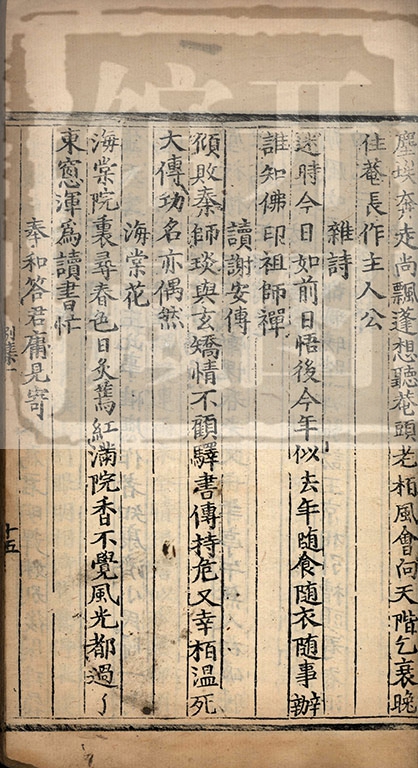 塵蛛奔走尚飄蓬想聽菴頭老栢風會向天階乞衰晚
住菴長作主人公
雜詩
迷時今日如前日悟後今年似去年随食随衣随事辦
誰知佛印祖師禪
讀謝安傳
傾敗秦師琰與玄矯情不顧驛書傳持危又幸栢溫死
大傳功名亦偶然
海棠花
海棠院裏尋春色日炙薦紅滿院香不覺風光都過了
東窓渾為讀書忙
奉和答君庸見寄
別集一
十五